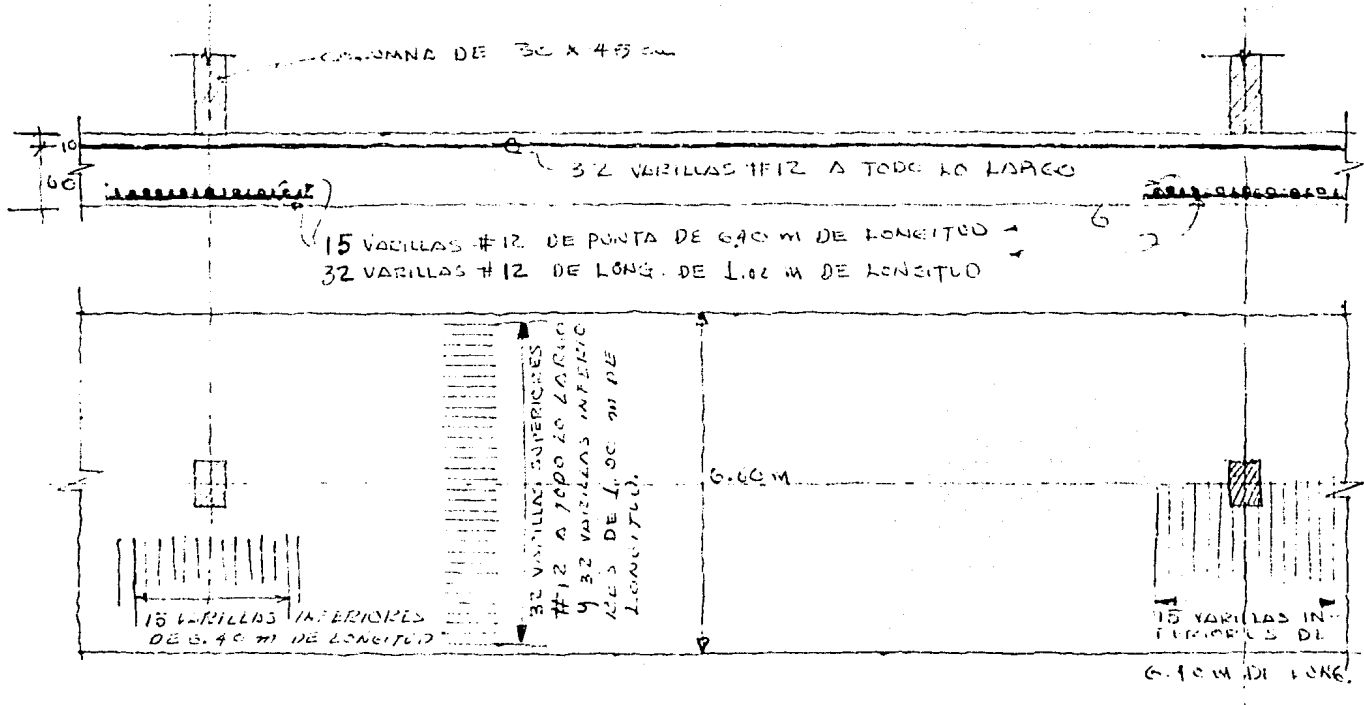 COLUMNA DE 30 X 45 cm
10
60
32 VARILLAS #12 A TODO LO LARGO
15 VARILLAS #12 DE PUNTA DE 6.40 m DE LONGITUD
32 VARILLAS #12 DE LONG. DE 1.00 m DE LONGITUD
32 VARILLAS SUPERIORES
#12 A TODO LO LARGO
Y 32 VARILLAS INFERIO
RES DE 1.00 m DE
LONGITUD.
6.60 m
15 VARILLAS INFERIORES
DE 6.40 m DE LONGITUD
15 VARILLAS IN-
FERIORES DE
6.40 m DE LONG.